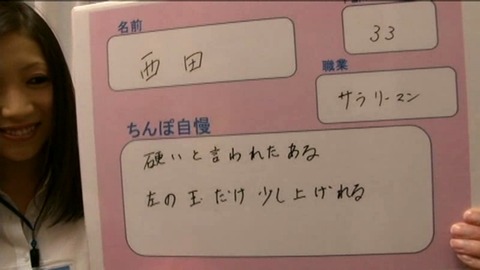 名前
西田
33
職業
サラリーマン
ちんぽ自慢
硬いと言われたある
左の玉だけ少し上げれる